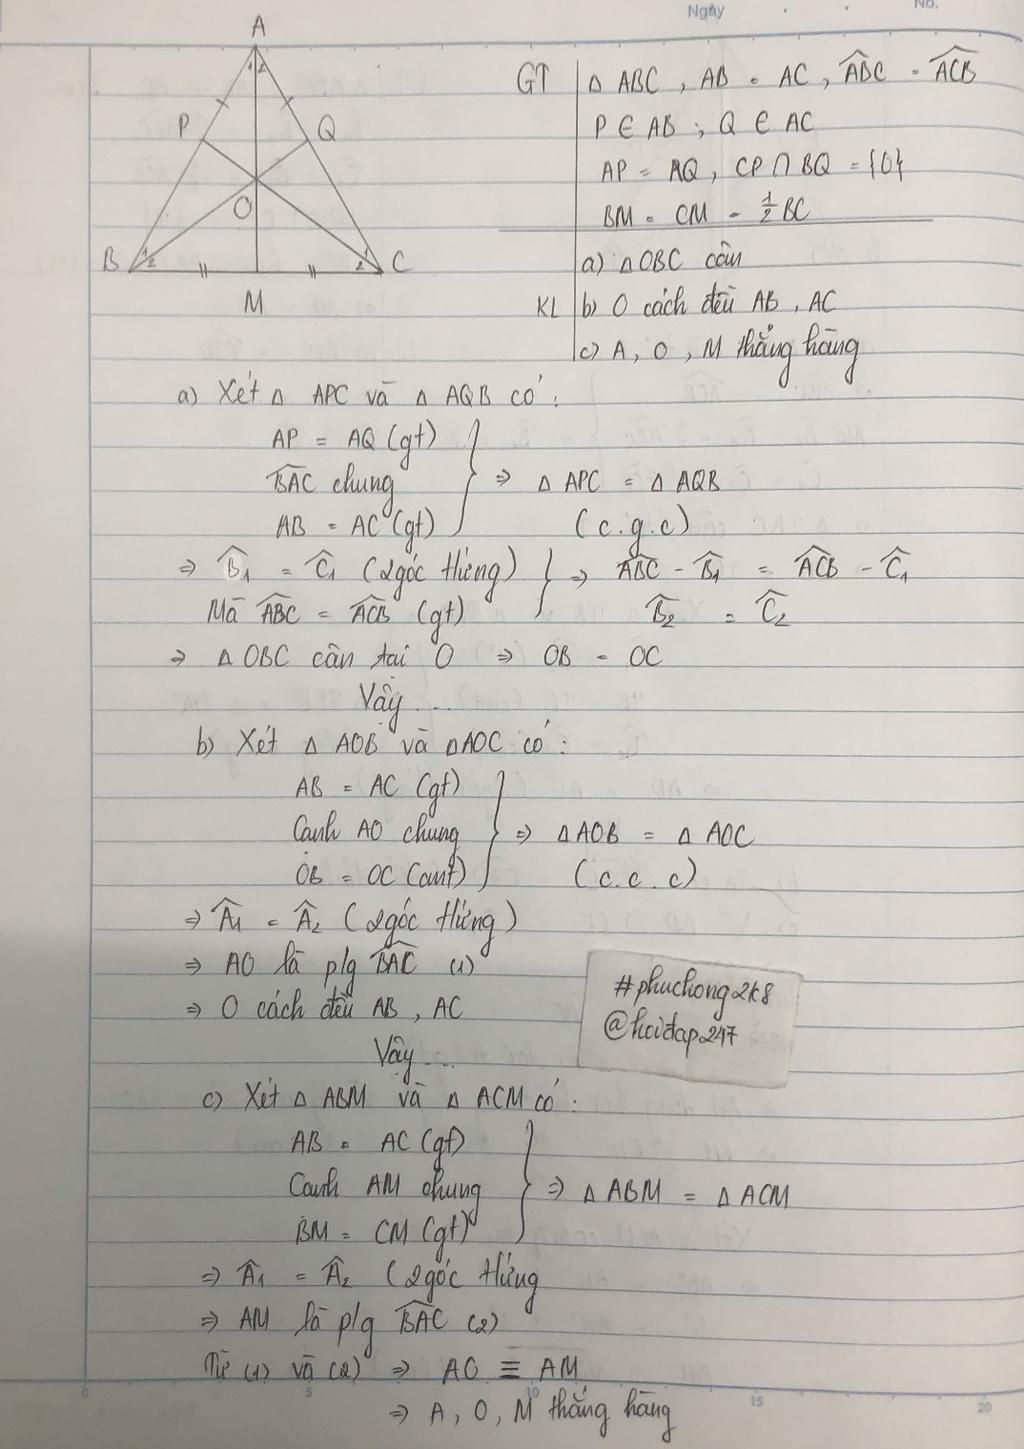 Ngày
No.
A
1 2
P
Q
O
B
1
2
2
C
M
GT
Δ ABC , AB = AC , ABC = ACB
P ∈ AB ; Q ∈ AC
AP = AQ , CP ∩ BQ = {O}
BM = CM = 1/2 BC
KL
a) Δ OBC cân
b) O cách đều AB , AC
c) A , O , M thẳng hàng
a) Xét Δ APC và Δ AQB có :
AP = AQ (gt)
BAC chung
AB = AC (gt)
⇒ Δ APC = Δ AQB
(c.g.c)
⇒ B̂1 = Ĉ1 (2góc t/ứng)
Mà ABC = ACB (gt)
⇒ ABC - B̂1 = ACB - Ĉ1
B̂2 = Ĉ2
⇒ Δ OBC cân tại O ⇒ OB = OC
Vậy ...
b) Xét Δ AOB và Δ AOC có :
AB = AC (gt)
Cạnh AO chung
OB = OC (cmt)
⇒ Δ AOB = Δ AOC
(c.c.c)
⇒ Â1 = Â2 (2góc t/ứng)
⇒ AO là p/g BAC (1)
⇒ O cách đều AB , AC
Vậy ...
#phuchong2k8
@hoidap247
c) Xét Δ ABM và Δ ACM có :
AB = AC (gt)
Cạnh AM chung
BM = CM (gt)
⇒ Δ ABM = Δ ACM
⇒ Â1 = Â2 (2góc t/ứng
⇒ AM là p/g BAC (2)
Từ (1) và (2) ⇒ AO ≡ AM
⇒ A , O , M thẳng hàng
0 5 10 15 20